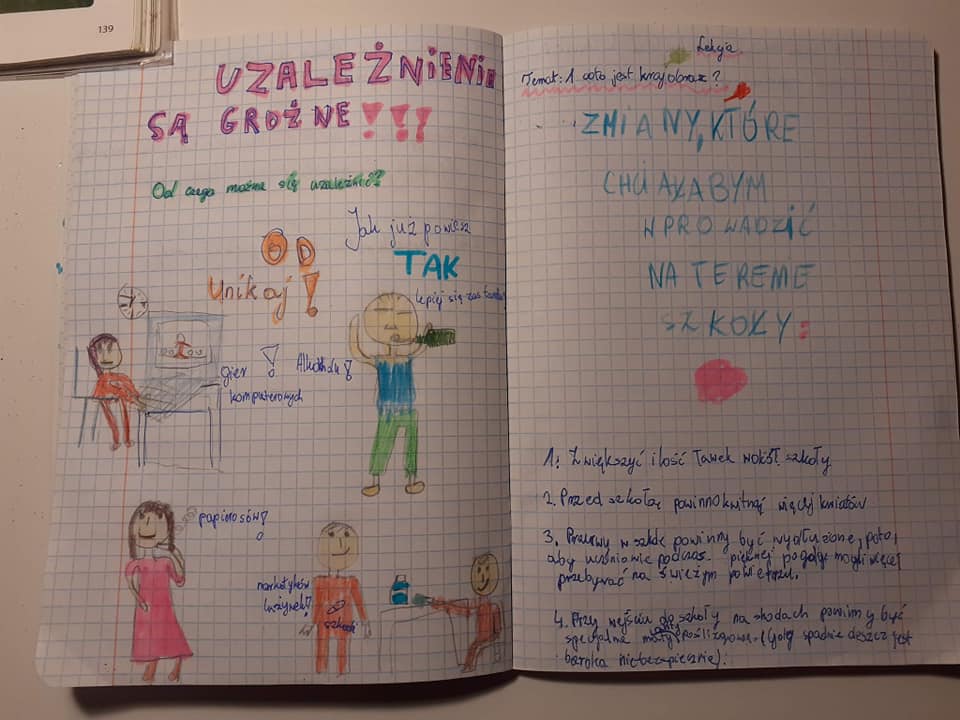 139
UZALEŻNIENIA
SĄ GROŹNE!!!
Od czego można się uzależnić?
OD
Unikaj!
Jak już powiesz
TAK
lepiej się zastanów
gier !
komputerowych
Alkoholu!
papierosów!
narkotyków
Lekcja
Temat: 1 coto jest krajobraz?
ZMIANY, KTÓRE
CHCIAŁABYM
WPROWADZIĆ
NA TERENIE
SZKOŁY:
1. Zwiększyć ilość ławek wokół szkoły
2. Przed szkołą powinno kwitnąć więcej kwiatów
3. Przerwy w szkole powinny być wydłużone, po to,
aby uczniowie podczas pięknej pogody mogli więcej
przebywać na świeżym powietrzu.
4. Przy wejściu do szkoły na schodach powinny być
specjalne maty (gdy spadnie deszcz jest
niebezpiecznie).